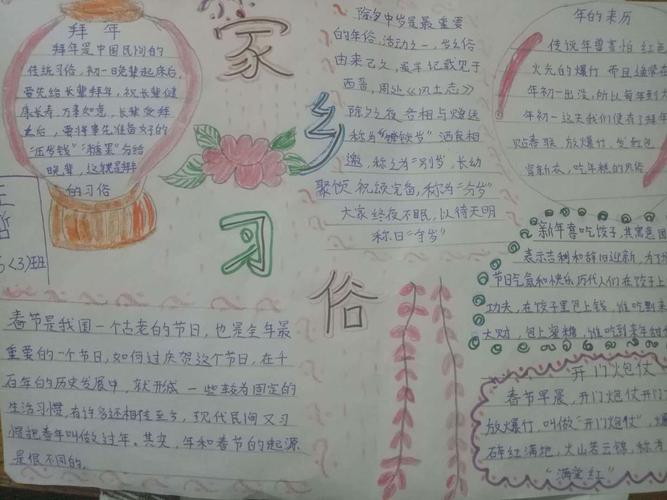 拜年
拜年是中国民间的
传统习俗,初一晚辈起床后,
要先给长辈拜年,祝长辈健
康长寿,万事如意,长辈受拜
之后,要将事先准备好的
“压岁钱”“糖果”分给
晚辈,这就是拜
的习俗
王
(3)班
家
乡
习
俗
除夕守岁是最重要
的年俗活动之一,守岁之俗
由来已久,最早记载见于
西晋,周处《风土志》
除夕之夜各相与赠送
称为“馈岁”酒食相
邀,称之为“别岁”,长幼
聚饮祝颂完备,称为“分岁”
大家终夜不眠,以待天明
称曰“守岁”
年的来历
传说年兽害怕红色
火光的爆竹 而且通常在
年初一出没,所以每年到
年初一这天我们便有了拜年
贴春联,放爆竹,发红包
穿新衣,吃年糕的风俗
新年喜吃饺子,其寓意团
表示吉利和辞旧迎新,为了
节日气氛和快乐历代人们在饺子
功夫,在饺子里包上钱,谁吃到来
大财,包上蜜糖,谁吃到来年甜
开门炮仗
春节早晨,开门炮仗开门
放爆竹,叫做“开门炮仗”,爆
碎红满地,火山若云锦,称为
“满堂红”
春节是我国一个古老的节日,也是全年最
重要的一个节日,如何过庆贺这个节日,在千
百年的历史发展中,就形成一些较为固定的
生活习惯,有许多还相传至今,现代民间又习
惯把春年叫做过年。其实,年和春节的起源
是很不同的。